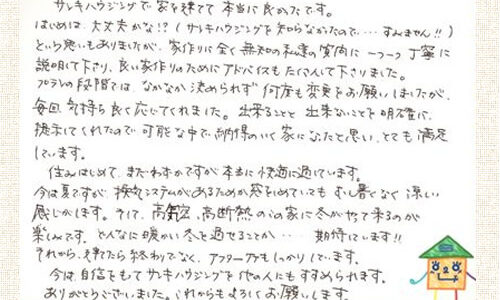 サンキハウジングで家を建てて本当に良かったです。
はじめは、大丈夫かな!?(サンキハウジングを知らなかったので……すみません!!)
という思いもありましたが、家作りに全く無知の私達の質問に一つ一つ丁寧に
説明して下さり、良い家作りのためにアドバイスもたくさんして下さりました。
プランの段階では、なかなか決められず何度も変更をお願いしましたが、
毎回気持ち良く応じてくれました。出来ることと出来ないことを明確に、
提示してくれたので可能な中で、納得のいく家になったと思い、とても満足
しています。
住みはじめて、まだわずかですが本当に快適に過しています。
今は夏ですが、換気システムがあるためか窓をしめていてもすい暑くなく涼しい
感じがします。そして、高気密、高断熱のこの家に冬がやって来るのが
楽しみです。どんなに暖かい冬を過せることか……期待しています!!
それから、建てたら終わりでなく、アフターケアもしっかりしています。
今は自信をもってサンキハウジングを他の人にもすすめられます。
ありがとうございました。これからもよろしくお願いします。